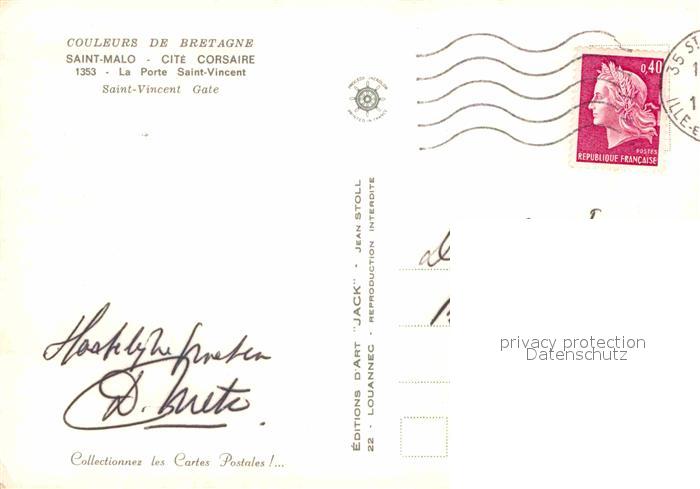 COULEURS DE BRETAGNE
SAINT-MALO - CITÉ CORSAIRE
1353 - La Porte Saint-Vincent
Saint-Vincent Gate
Collectionnez les Cartes Postales !...
ÉDITIONS D'ART "JACK" - JEAN STOLL
22 - LOUANNEC - REPRODUCTION INTERDITE
0,40
POSTES
RÉPUBLIQUE FRANÇAISE
35 ST
ILLE-E
privacy protection
Datenschutz